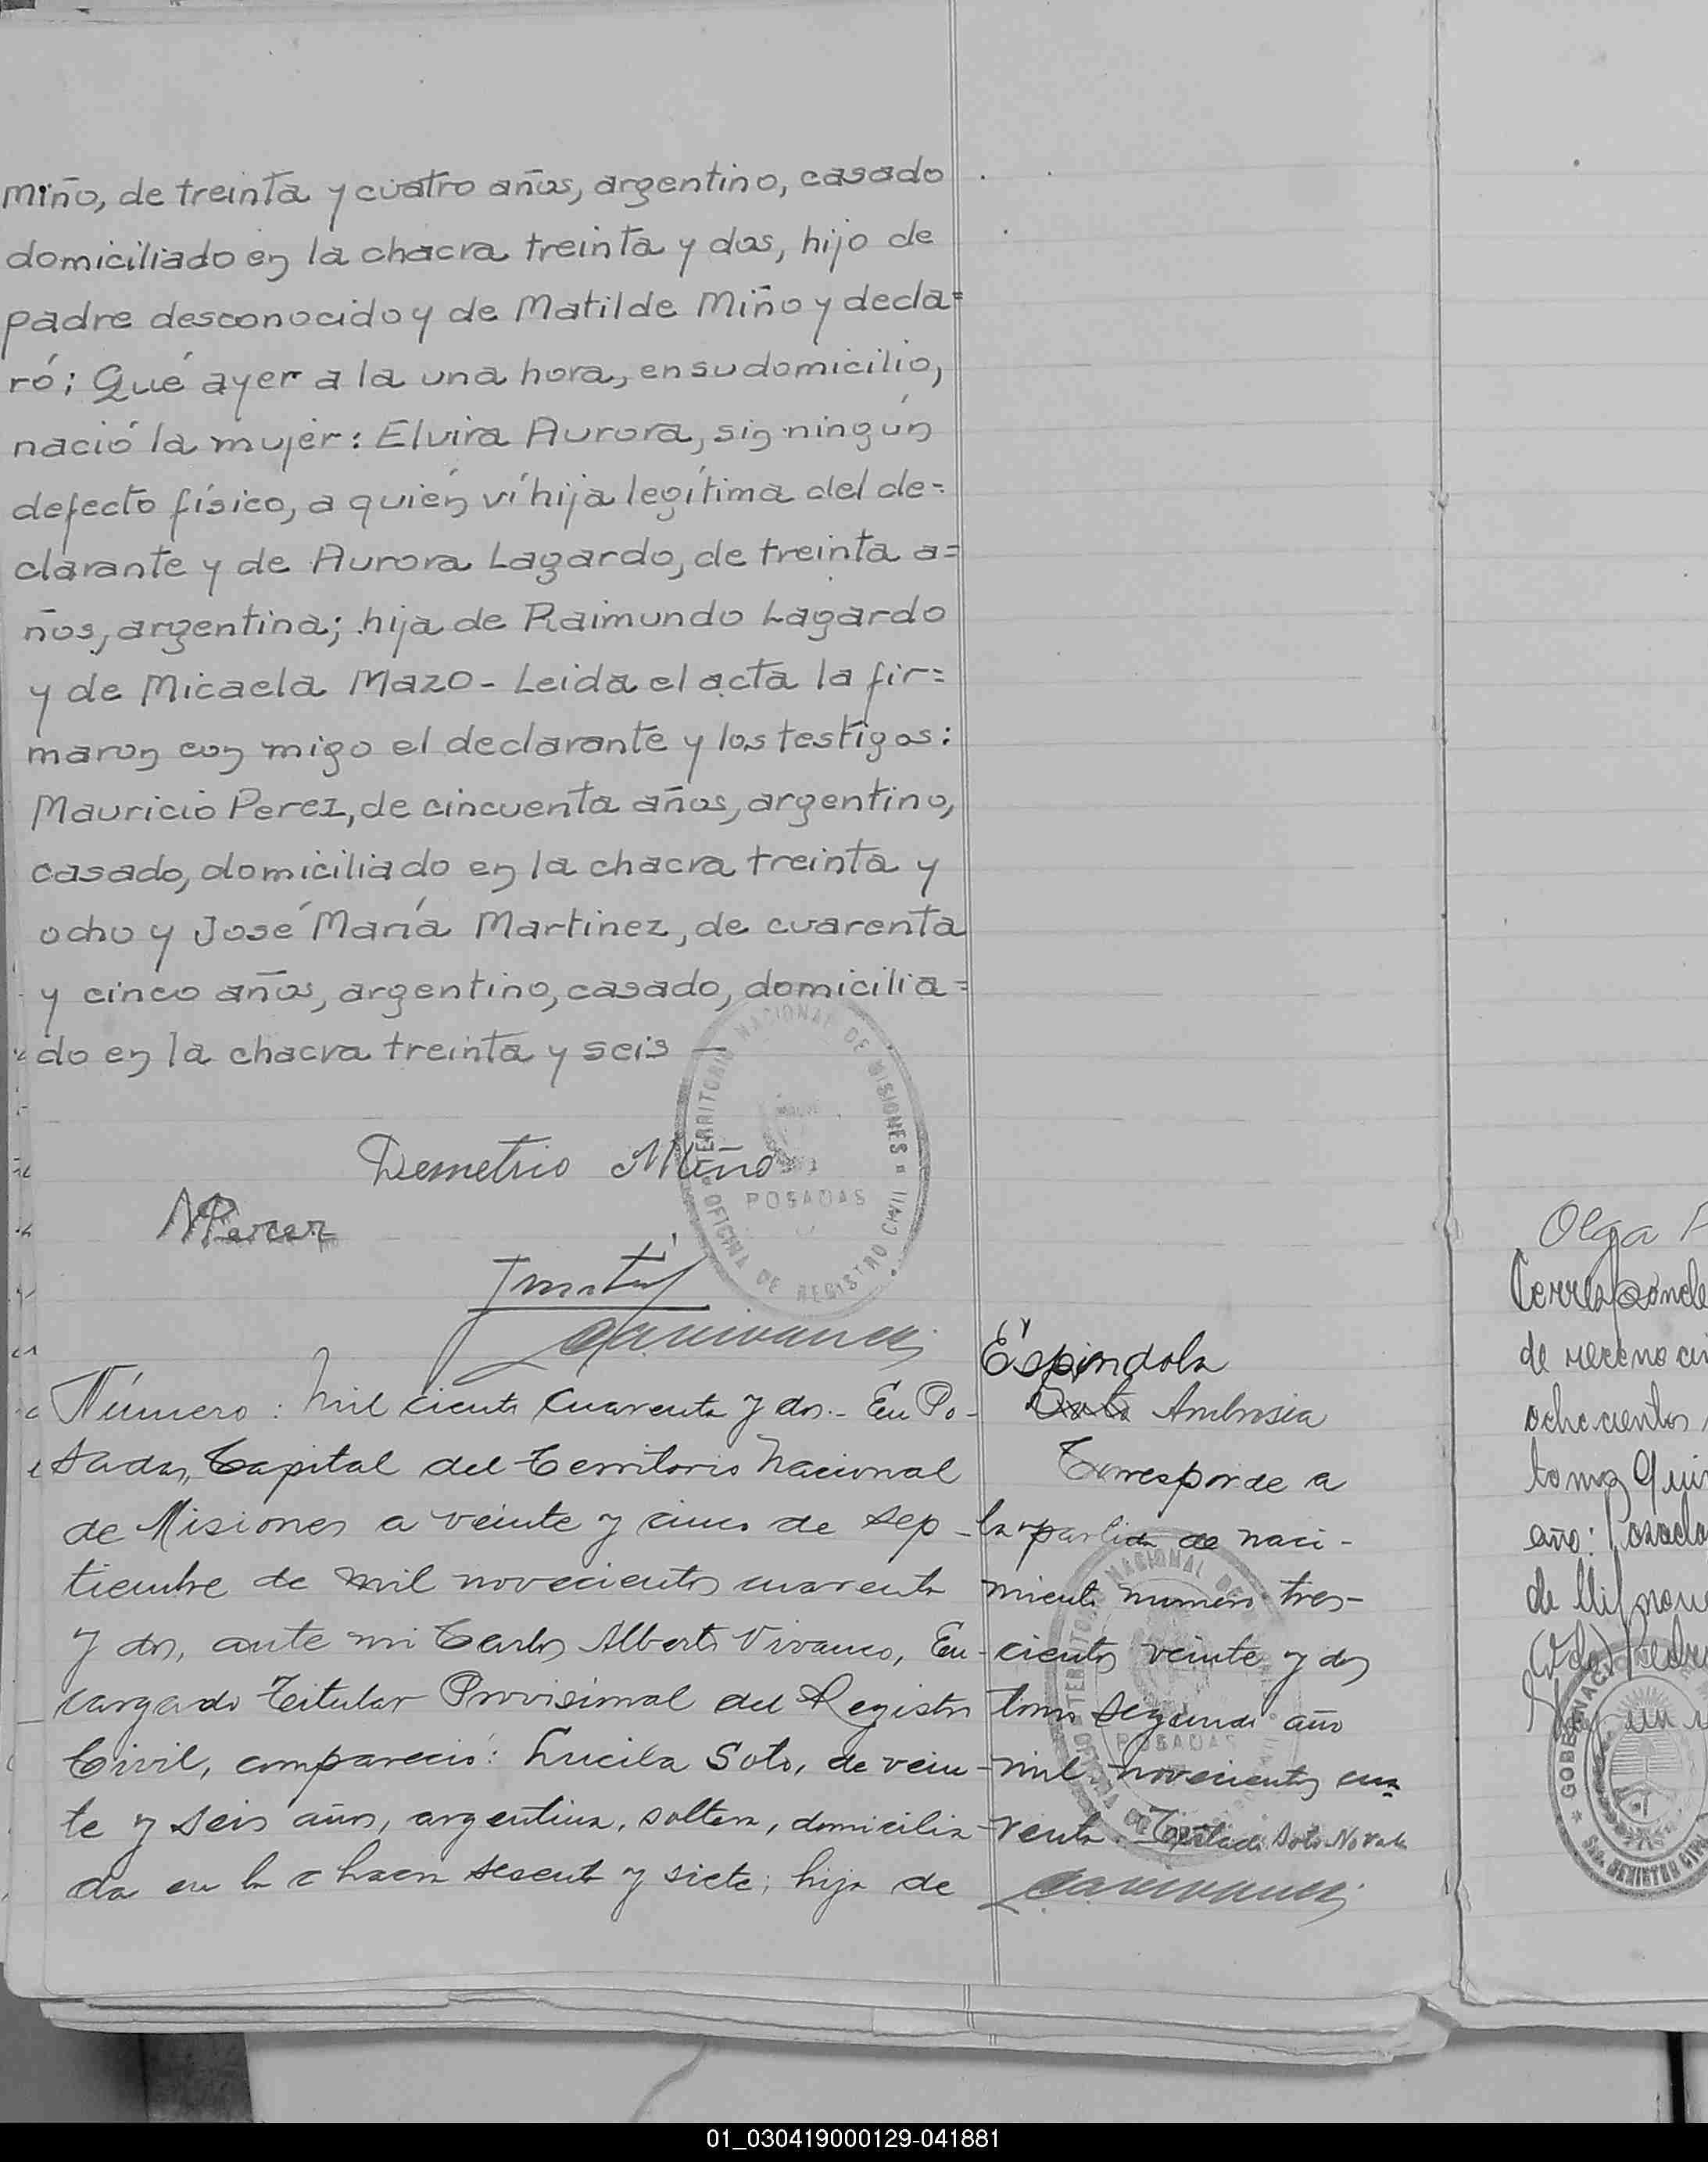 Miño, de treinta y cuatro años, argentino, casado
domiciliado en la chacra treinta y dos, hijo de
padre desconocido y de Matilde Miño y decla=
ró; Qué ayer a la una hora, en su domicilio,
nació la mujer: Elvira Aurora, sin ningún
defecto físico, a quién ví hija legítima del de=
clarante y de Aurora Lagardo, de treinta a=
ños, argentina; hija de Raimundo Lagardo
y de Micaela Mazo - Leida el acta la fir=
maron con migo el declarante y los testigos:
Mauricio Perez, de cincuenta años, argentino,
casado, domiciliado en la chacra treinta y
ocho y José María Martinez, de cuarenta
y cinco años, argentino, casado, domicilia=
do en la chacra treinta y seis —
TERRITORIO NACIONAL DE MISIONES
POSADAS
OFICINA DE REGISTRO CIVIL
Demetrio Miño
MPerez
Número: Mil ciento cuarenta y dos.- En Po-
sadas, Capital del Territorio Nacional
de Misiones a veinte y cinco de sep-
tiembre de mil novecientos cuarenta
y dos, ante mi Carlos Alberto Vivanco, En-
cargado Titular Provisional del Registro
Civil, compareció: Lucila Soto, de vein-
te y seis años, argentina, soltera, domicilia-
da en la chacra sesenta y siete; hija de
Espindola
Soto Ambrosia
Corresponde a
la partida de naci-
miento número tres-
cientos veinte y dos
tomo segundo año
mil novecientos cua
renta. Testado Soto No vale
TERRITORIO NACIONAL DE
POSADAS
Olga
Corresponde
de
ochocientos
tomo
año: Posada
de Mil nove
(Vda) Pedro
un
GOBERNACION
REGISTRO CIVIL
01_030419000129-041881